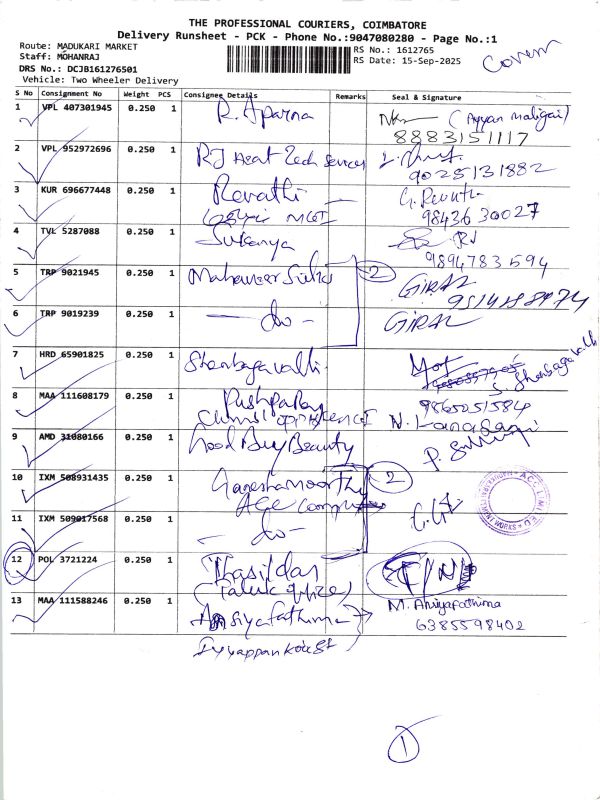 THE PROFESSIONAL COURIERS, COIMBATORE
Delivery Runsheet - PCK - Phone No.:9047080280 - Page No.:1
Route: MADUKARI MARKET RS No.: 1612765
Staff: MOHANRAJ RS Date: 15-Sep-2025
DRS No.: DCJB161276501
Vehicle: Two Wheeler Delivery
S No Consignment No Weight PCS Consignee Details Remarks Seal & Signature
1 VPL 407301945 0.250 1 R. Aparna (Ayyan Maligai)
8883151117
2 VPL 952972696 0.250 1 RJ Heat Tech Services
9025131882
3 KUR 696677448 0.250 1 Revathi G. Revathi
9843630027
4 TVL 5287088 0.250 1 Sukanya RJ
9894783594
5 TRP 9021945 0.250 1 Mahaveer 2 GIRAL
6 TRP 9019239 0.250 1 - do - GIRAL
7 HRD 65901825 0.250 1 Shenbagavalli S. Shenbagavalli
8 MAA 111608179 0.250 1 Pushparaj 9865051584
9 AMD 31080166 0.250 1 Good Buy Beauty
10 IXM 508931435 0.250 1 Ganeshamoorthy 2
AGE
11 IXM 509017568 0.250 1 - do -
12 POL 3721224 0.250 1 Thasildar
(Taluk Office)
13 MAA 111588246 0.250 1 Ansiya fathima M. Ansiyafathima
6385598402
Iyyappan Kovil St
1